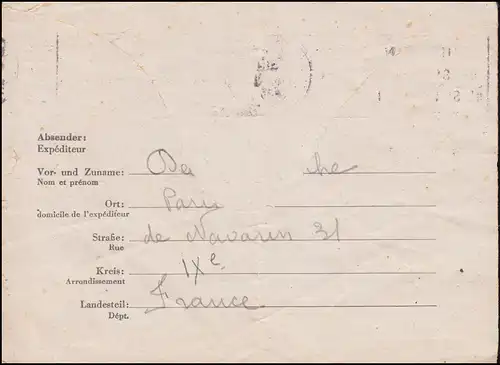 Absender:
Expéditeur
Vor- und Zuname:
Nom et prénom
Ort: Paris
domicile de l'expéditeur
Straße: de Navarin 31
Rue
Kreis: IXe
Arrondissement
Landesteil: France
Dépt.